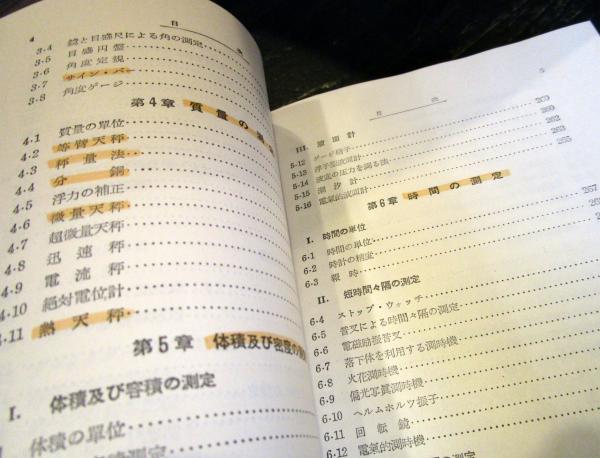 4
目
3·4 鏡と目盛尺による角の測定
3·5 目盛円盤
3·6 角度定規
3·7 サイン・バー
3·8 角度ゲージ
第4章 質量の測
4·1 質量の単位
4·2 等臂天秤
4·3 秤量法
4·4 分銅
4·5 浮力の補正
4·6 微量天秤
4·7 超微量天秤
4·8 迅速秤
4·9 電流秤
4·10 絶対電位計
4·11 熱天秤
第5章 体積及び密度の
I. 体積及び容積の測定
体積の単位
測定
目 次 5
III.
5·12 ゲージ硝子 259
5·13 浮子型波浪計
5·14 波浪の圧力を測る法
5·15 潮汐計
5·16 電氣的波浪計 265
第6章 時間の測定
I. 時間の単位 257
6·1 時間の単位
6·2 時計の精度
6·3 報時
II. 短時間々隔の測定
6·4 ストップ・ウォッチ
6·5 音叉による時間々隔の測定
6·6 電磁励振音叉
6·7 落下体を利用する測時機
6·8 火花測時機
6·9 偏光写真測時機
6·10 ヘルムホルツ振子
6·11 回転鏡
6·12 電氣的測時機
隔の測定